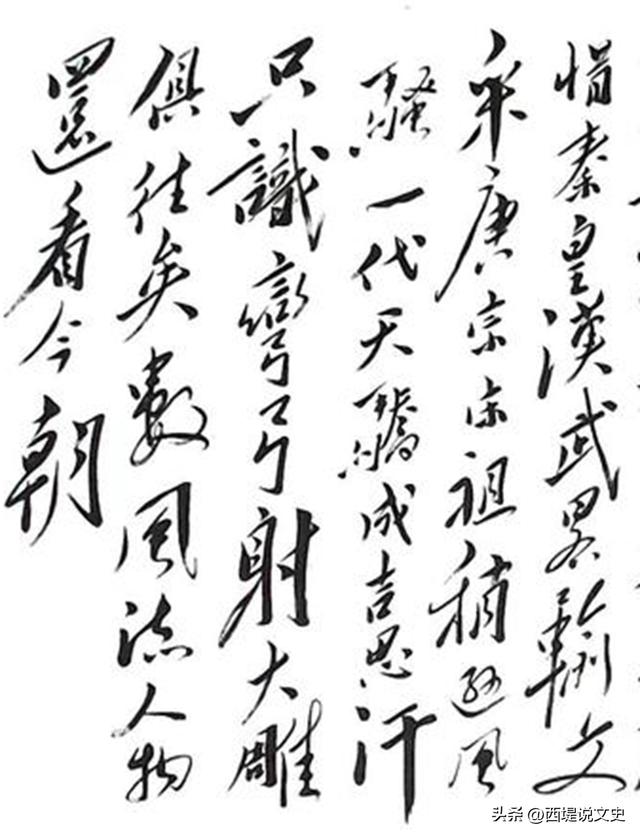 惜秦皇漢武畧輸文
采唐宗宋祖稍遜風
騷一代天驕成吉思汗
只識彎弓射大雕
俱往矣數風流人物
還看今朝
头条 @西堤说文史